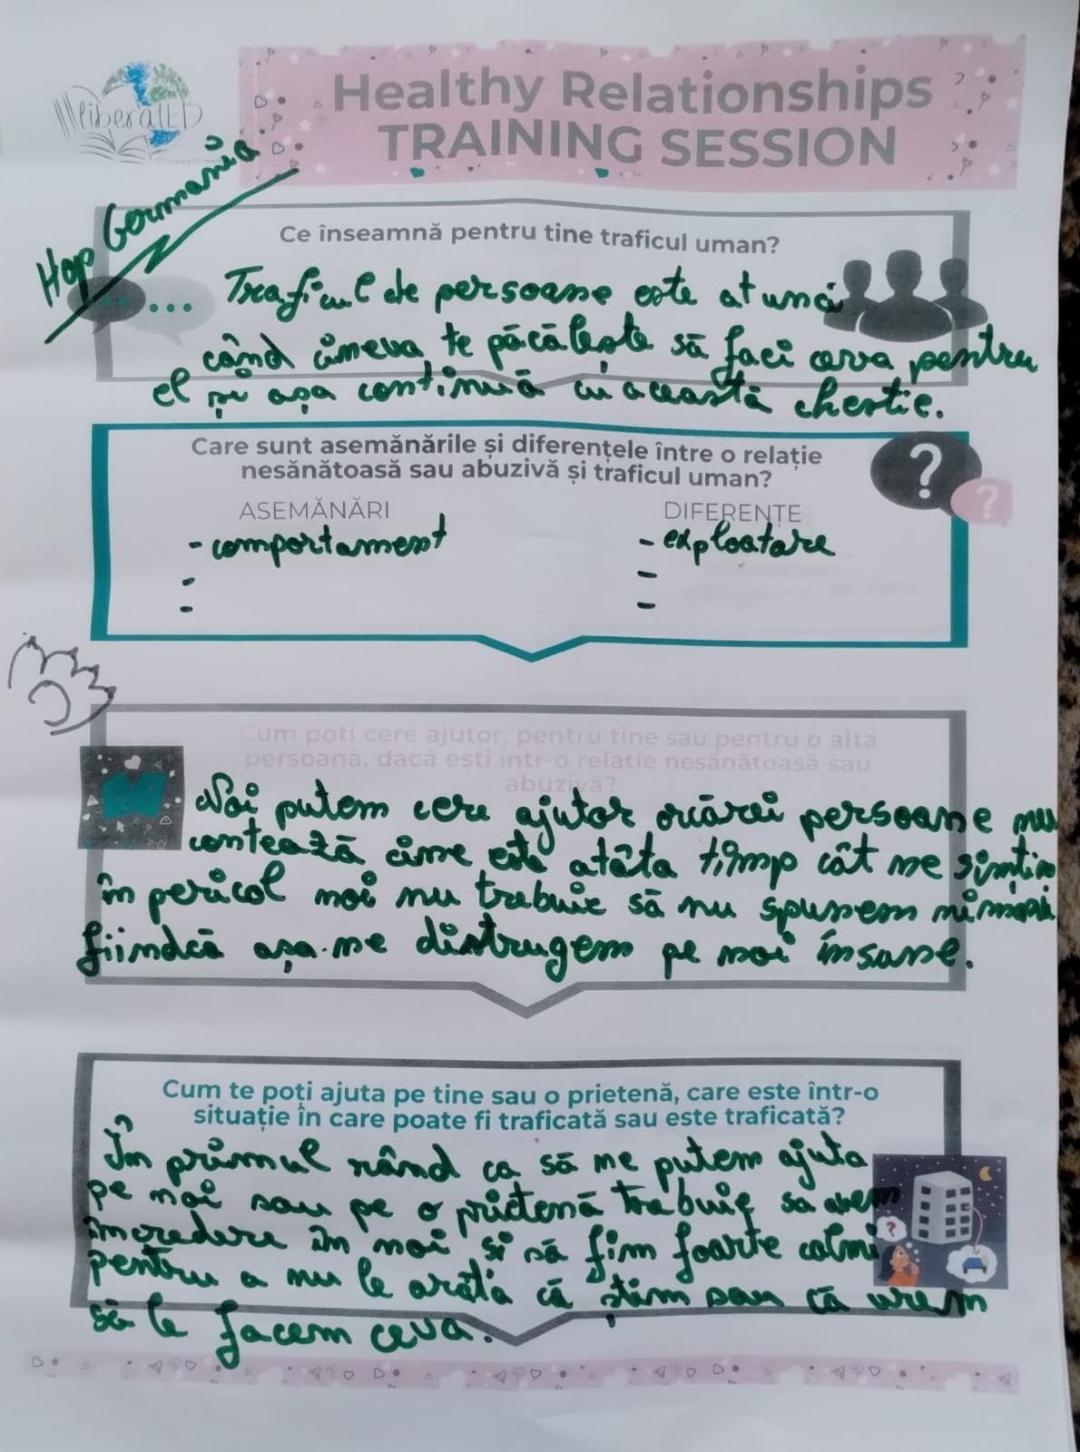 liberatED
Healthy Relationships
TRAINING SESSION
Hop Germania
Ce înseamnă pentru tine traficul uman?
Traficul de persoane este atunci
când cineva te păcălește să faci ceva pentru
el și așa continuă cu această chestie.
Care sunt asemănările și diferențele între o relație
nesănătoasă sau abuzivă și traficul uman?
ASEMĂNĂRI
- comportament
-
-
DIFERENȚE
- exploatare
-
-
Cum poti cere ajutor, pentru tine sau pentru o alta
persoană, dacă ești intr-o relatie nesănătoasă sau
abuzivă?
Noi putem cere ajutor oricărei persoane nu
contează cine este atâta timp cât ne simțim
în pericol noi nu trebuie să nu spunem nimănui
fiindcă așa ne distrugem pe noi însane.
Cum te poți ajuta pe tine sau o prietenă, care este într-o
situație în care poate fi traficată sau este traficată?
În primul rând ca să ne putem ajuta
pe noi sau pe o prietenă trebuie sa avem
încredere în noi și să fim foarte calmi
pentru a nu le arăta că știm sau că vrem
să le facem ceva.